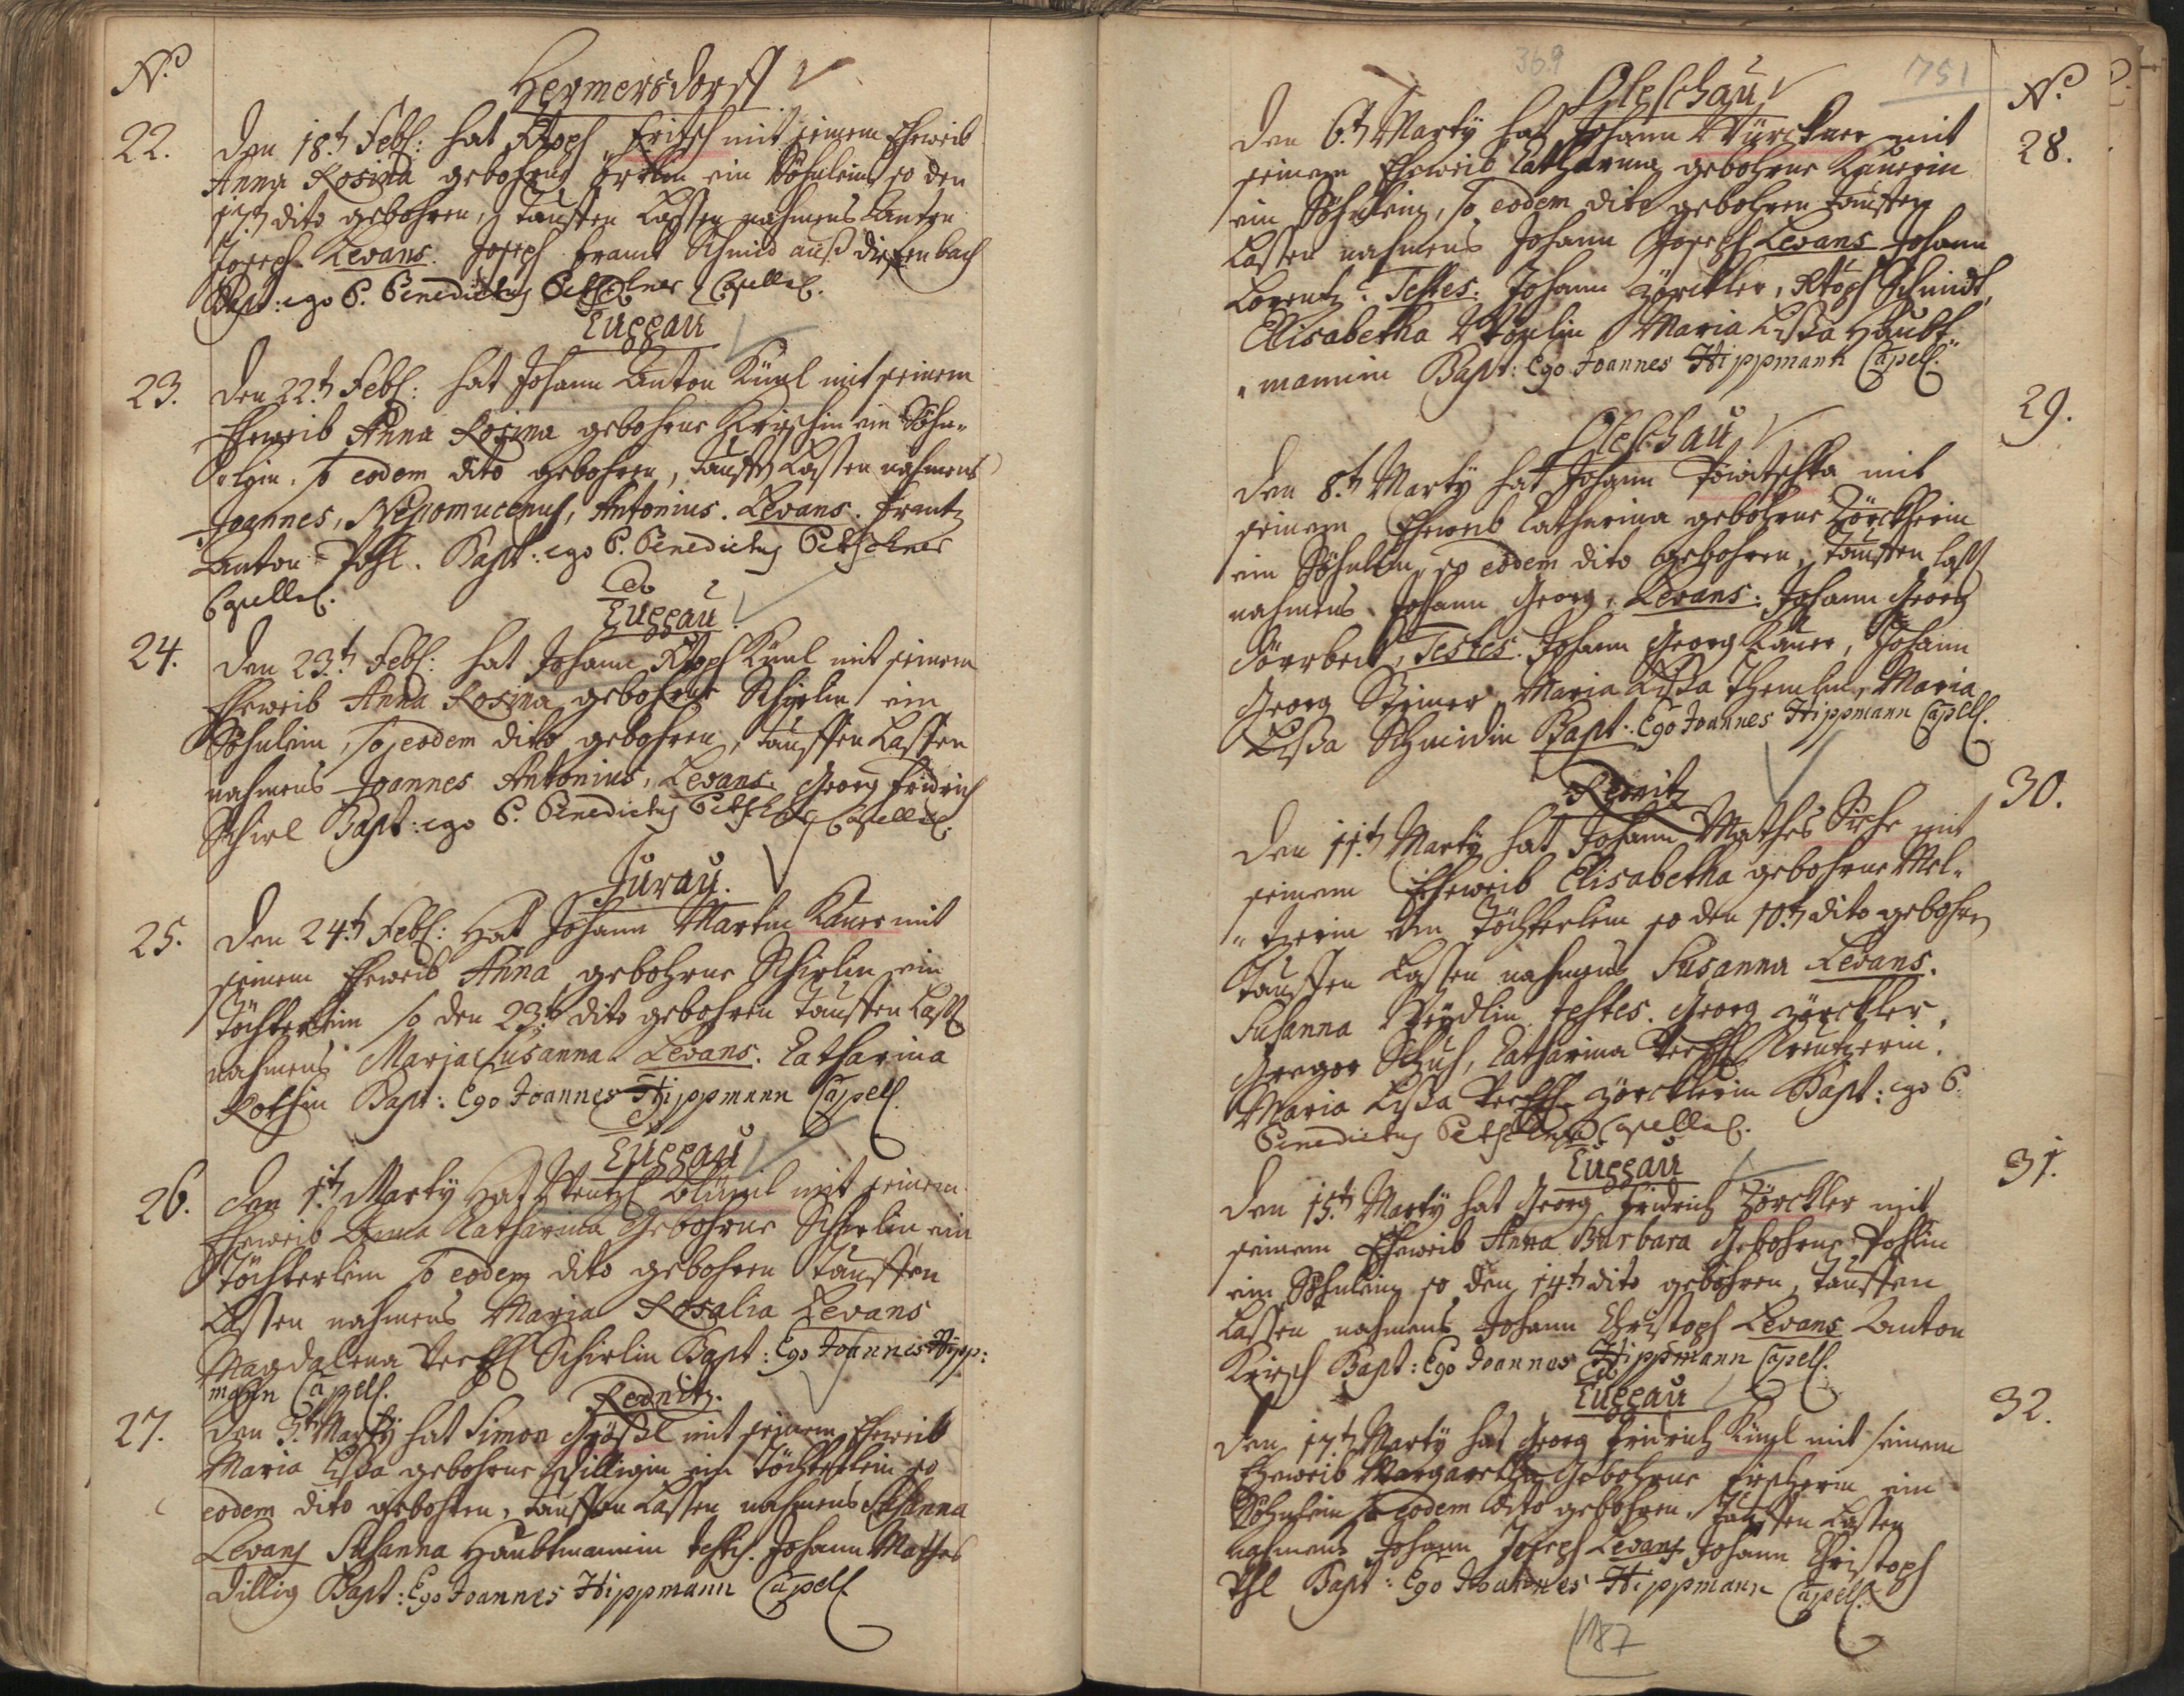 No
Hermersdorff
22. Den 18t Febl: hat Xtoph Fritsch mit seinem Eheweib
Anna Rosina gebohrne ein Söhnlein so den
dito gebohren, tauffen Lassen nahmens Anton
Joseph Levans. Joseph Frantz Schmid auß Diessenbach
Bapt: ego P. Benedictus Capellal.
Luggau
23. Den 22t Febl: hat Johann Anton Kügl mit seinem
Eheweib Anna Rosina gebohrne Kirschin ein Söhn-
lein, so eodem dito gebohren, tauffen Lassen nahmens
Joannes, Nepomucenus, Antonius. Levans. Frantz
Anton Pohl. Bapt: ego P. Benedictus
Capellal.
Luggau
24. Den 23t Febl: hat Johann Xtoph Kügl mit seinem
Eheweib Anna Rosina gebohrne Schirlin ein
Söhnlein, so eodem dito gebohren, tauffen Lassen
nahmens Joannes Antonius, Levans. Georg Fridrich
Schirl Bapt: ego P. Benedictus Capellal.
Zuray.
25. Den 24t Febl: Hat Johann Martin Kauer mit
seinem Eheweib Anna gebohrne Schirlin ein
Töchterlein so den 23t dito gebohren tauffen Lassen
nahmens Maria Susanna. Levans. Catharina
Rothin Bapt: Ego Joannes Hippmann Capell.
Luggau
26. Den 1t Marty Hat Wentzl Blümil mit seinem
Eheweib Anna Catharina Gebohrne Schirlin ein
Töchterlein so eodem dito gebohren tauffen
Lassen nahmens Maria Rosalia Levans
Magdalena Schirlin Bapt: Ego Joannes Hipp:
mann Capell.
Rednitz.
27. Den 3t Marty hat Simon Größl mit seinem Eheweib
Maria Lißa gebohrne Dilligin ein Töchterlein so
eodem dito gebohren, tauffen Lassen nahmens Susanna
Levans Susanna Haubtmannin testes. Johann Mathes
Dillig Bapt: Ego Joannes Hippmann Capell
369
1751
No
Oleschau
28. Den 6t Marty hat Johann Würckner mit
seinem Eheweib Catharina gebohrne Kauerin
ein Söhnlein, so eodem dito gebohren tauffen
Lassen nahmens Johann Joseph Levans Johann
Lorentz. Testes. Johann Zörckler, Xtoph Schmidt,
Elisabetha Maria Lißa Haubt-
mannin Bapt: Ego Joannes Hippmann Capell.
Oleschau
29. Den 8t Marty hat Johann Powitschka mit
seinem Eheweib Catharina gebohrne Zörcklerin
ein Söhnlein, so eodem dito gebohren, tauffen lass
nahmens Johann Georg. Levans. Johann Georg
Testes. Johann Georg Kauer, Johann
Georg Steiner Maria Lißa Maria
Lißa Schmidin Bapt: Ego Joannes Hippmann Capell.
Rednitz
30. Den 11t Marty hat Johann Mathes mit
seinem Eheweib Elisabetha gebohrne Mel-
tzerin ein Töchterlein so den 10t dito gebohren
Tauffen Lassen nahmens Susanna Levans.
Susanna testes. Georg Zörckler,
Gregor Schuh, Catharina Kreutzerin.
Maria Lißa Zörcklerin Bapt: ego P.
Benedictus Capellal.
Luggau
31. Den 15t Marty hat Georg Fridrich Zörckler mit
seinem Eheweib Anna Barbara Gebohrne Pohlin
ein Söhnlein so den 14t dito gebohren, tauffen
Lassen nahmens Johann Christoph Levans Anton
Kirsch Bapt: Ego Joannes Hippmann Capell.
Luggau
32. Den 17t Marty hat Georg Fridrich Kügl mit seinem
Eheweib Margaretha Gebohrne Fischerin ein
Söhnlein so eodem dito gebohren. Tauffen Lassen
nahmens Johann Joseph Levans Johann Christoph
Bapt: Ego Joannes Hippmann Capell.
187